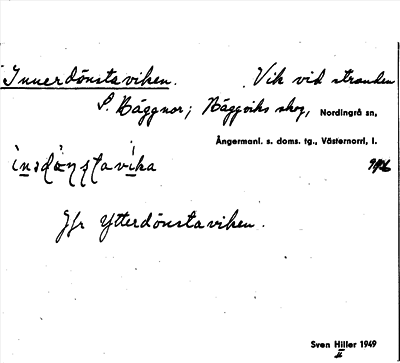 Innerdönstaviken. Vik vid stranden
S. Häggnor; Häggviks skog, Nordingrå sn,
Ångermanl. s. doms. tg., Västernorrl. l.
Jfr Ytterdönstaviken.
Sven Hiller 1949